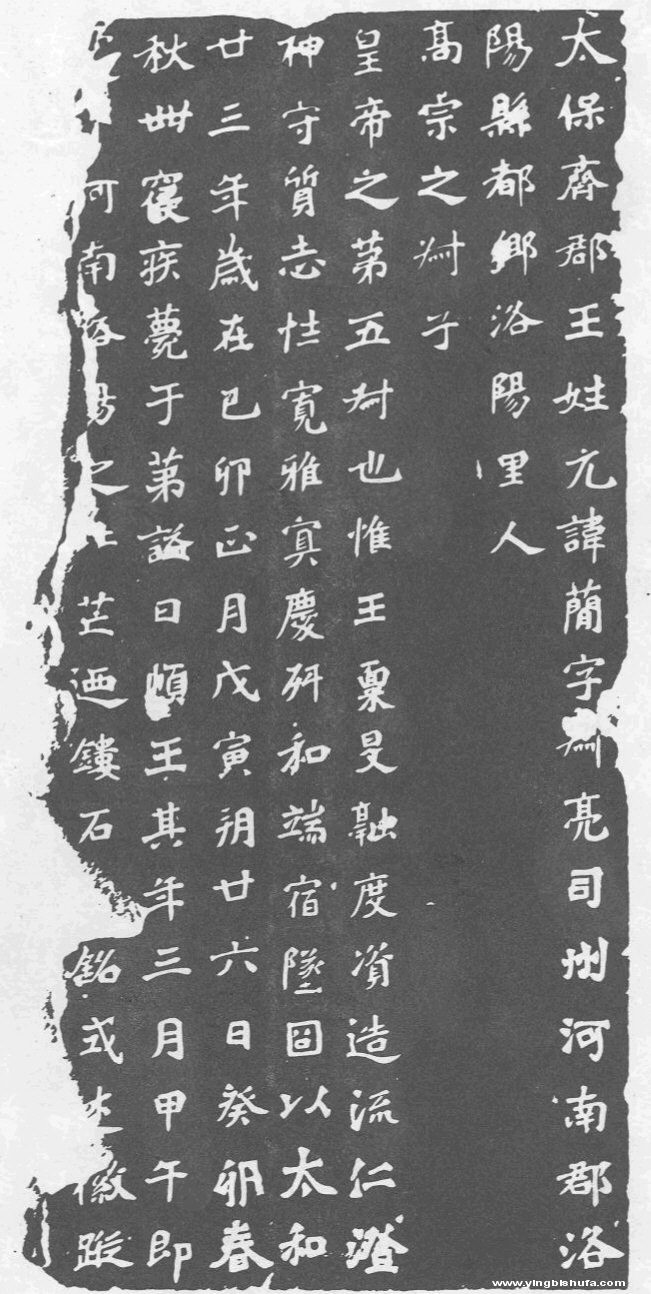 太保齊郡王姓元諱簡字叔亮司州河南郡洛
陽縣都鄉洛陽里人
高宗之叔子
皇帝之第五叔也惟王稟旻融度資造流仁澄
神守質志性寬雅寘慶研和端宿墜固以太和
廿三年歲在己卯正月戊寅朔廿六日癸卯春
秋卌寢疾薨于第謚曰順王其年三月甲午即
河南洛陽之芒迺鏤石銘式述徽蹤
www.yingbishufa.com